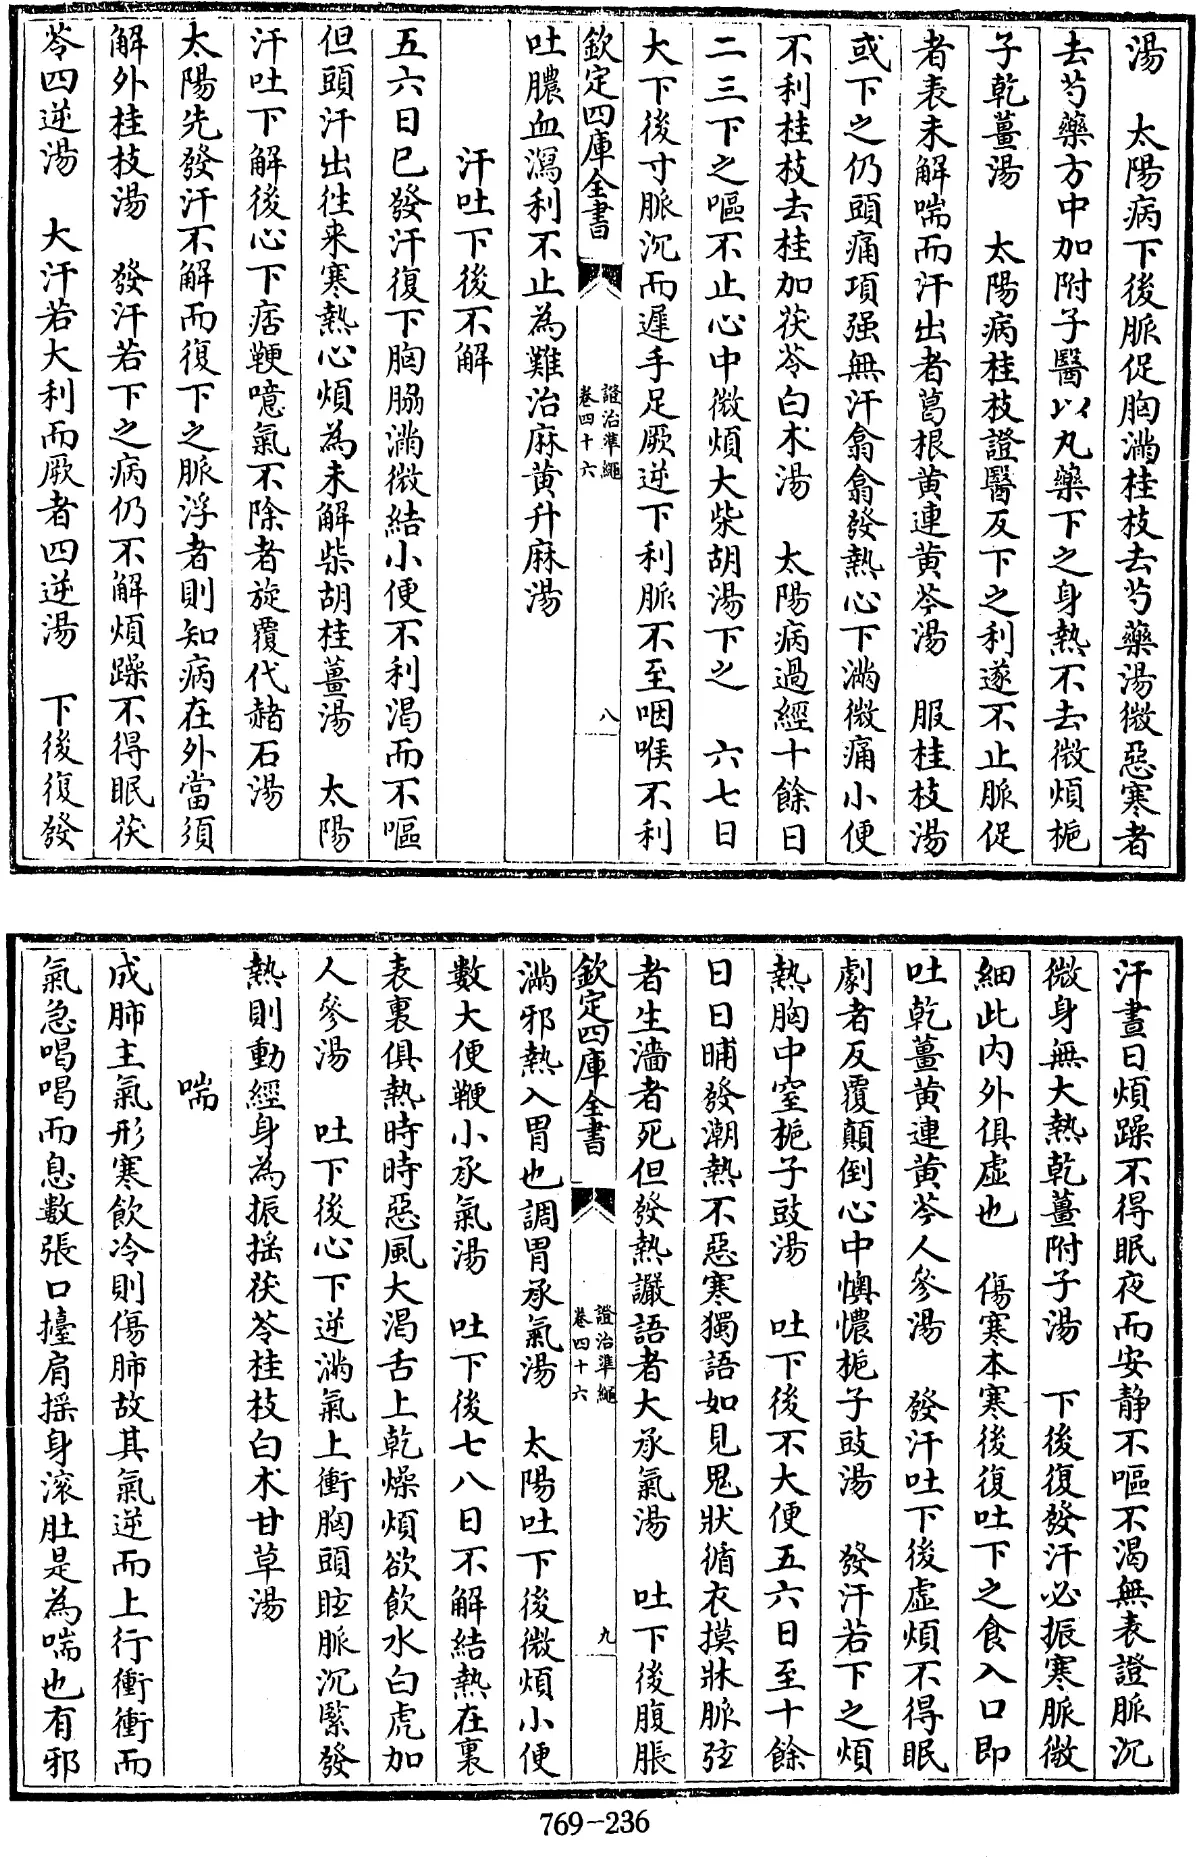 湯　太陽病下後脈促胸滿桂枝去芍藥湯微惡寒者
去芍藥方中加附子醫以丸藥下之身熱不去微煩梔
子乾薑湯　太陽病桂枝證醫反下之利遂不止脈促
者表未解喘而汗出者葛根黄連黄芩湯　服桂枝湯
或下之仍頭痛項强無汗翕翕發熱心下滿微痛小便
不利桂枝去桂加茯苓白术湯　太陽病過經十餘日
二三下之嘔不止心中微煩大柴胡湯下之　六七日
大下後寸脈沉而遲手足厥逆下利脈不至咽喉不利
欽定四庫全書　證治準繩　卷四十六　八
吐膿血瀉利不止為難治麻黄升麻湯
汗吐下後不解
五六日已發汗復下胸脇滿微結小便不利渴而不嘔
但頭汗出徃来寒熱心煩為未解柴胡桂薑湯　太陽
汗吐下解後心下痞鞕噫氣不除者旋覆代赭石湯
太陽先發汗不解而復下之脈浮者則知病在外當須
解外桂枝湯　發汗若下之病仍不解煩躁不得眠茯
苓四逆湯　大汗若大利而厥者四逆湯　下後復發
汗晝日煩躁不得眠夜而安静不嘔不渴無表證脈沉
微身無大熱乾薑附子湯　下後復發汗必振寒脈微
細此内外俱虚也　傷寒本寒後復吐下之食入口即
吐乾薑黄連黄芩人參湯　發汗吐下後虚煩不得眠
劇者反覆顛倒心中懊憹梔子豉湯　發汗若下之煩
熱胸中窒梔子豉湯　吐下後不大便五六日至十餘
日日晡發潮熱不惡寒獨語如見鬼狀循衣摸牀脈弦
者生濇者死但發熱讝語者大承氣湯　吐下後腹脹
欽定四庫全書　證治準繩　卷四十六　九
滿邪熱入胃也調胃承氣湯　太陽吐下後微煩小便
數大便鞕小承氣湯　吐下後七八日不解結熱在裏
表裏俱熱時時惡風大渴舌上乾燥煩欲飲水白虎加
人參湯　吐下後心下逆滿氣上衝胸頭眩脈沉緊發
熱則動經身為振摇茯苓桂枝白术甘草湯
喘
成肺主氣形寒飲冷則傷肺故其氣逆而上行衝衝而
氣急喝喝而息數張口擡肩摇身滚肚是為喘也有邪
769-236